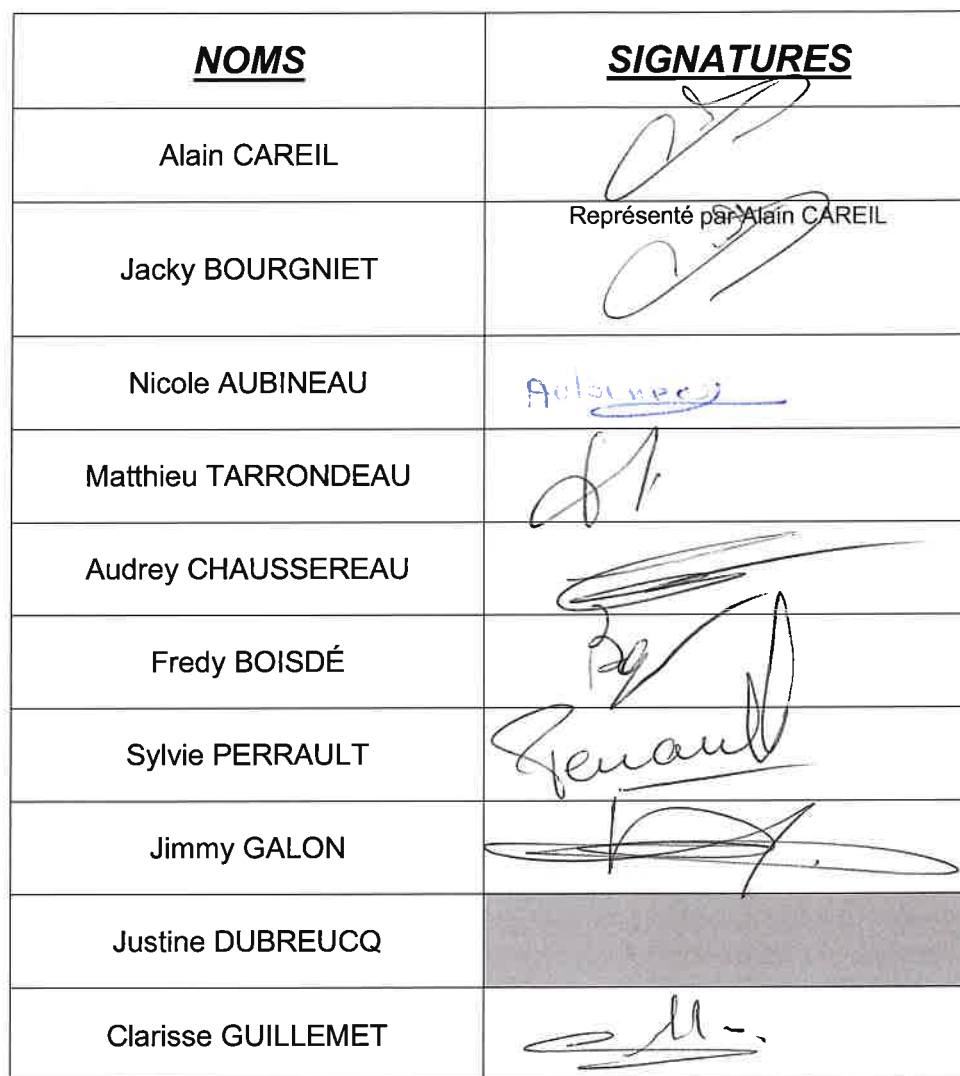 NOMS SIGNATURES
Alain CAREIL
Représenté par Alain CAREIL
Jacky BOURGNIET
Nicole AUBINEAU
Matthieu TARRONDEAU
Audrey CHAUSSEREAU
Fredy BOISDÉ
Sylvie PERRAULT
Jimmy GALON
Justine DUBREUCQ
Clarisse GUILLEMET